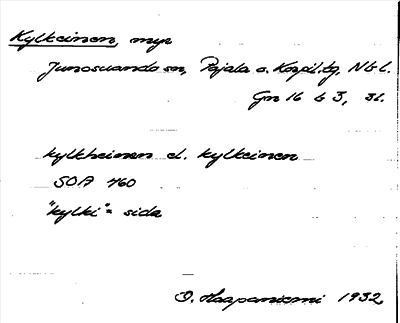 Kylkeinen, myr
Junosuando sn, Pajala o. Korpil. tg, Nb l.
Gn 16 b 3, sl.
kylkheinen el. kylkeinen
SOA 460
"kylki" = sida
O. Haapaniemi 1932